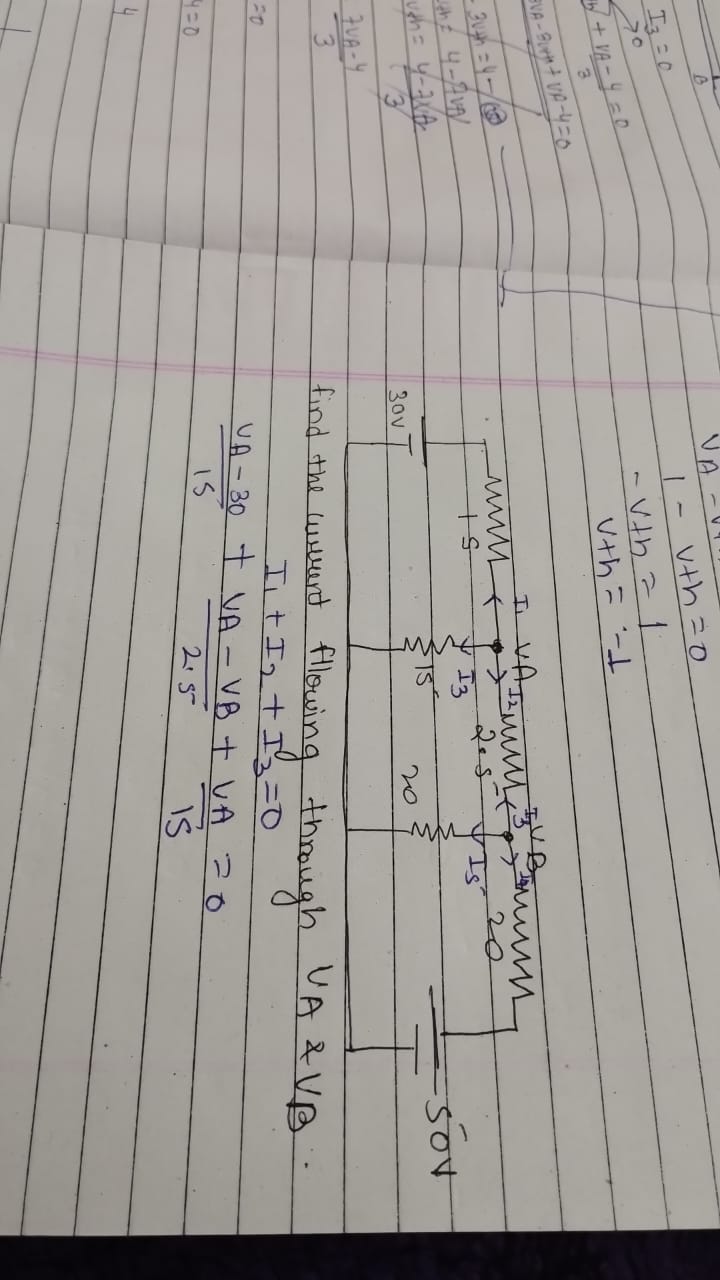 B
I3 = 0
0
+ VA - 4 / 3 = 0
VA - 4 = 0
3Vth = 4 -
4 - 7VA
Vth = 4 - 7VA / 3
7VA - 4 / 3
= 0
4 = 0
4
VA -
1 - Vth = 0
- Vth = 1
Vth = -1
I1 VA I2 I3 VB I4
15 2.5 20
I3 I5
15 20
30V 50V
find the current fllowing through VA & VB .
I1 + I2 + I3 = 0
VA - 30 / 15 + VA - VB / 2.5 + VA / 15 = 0